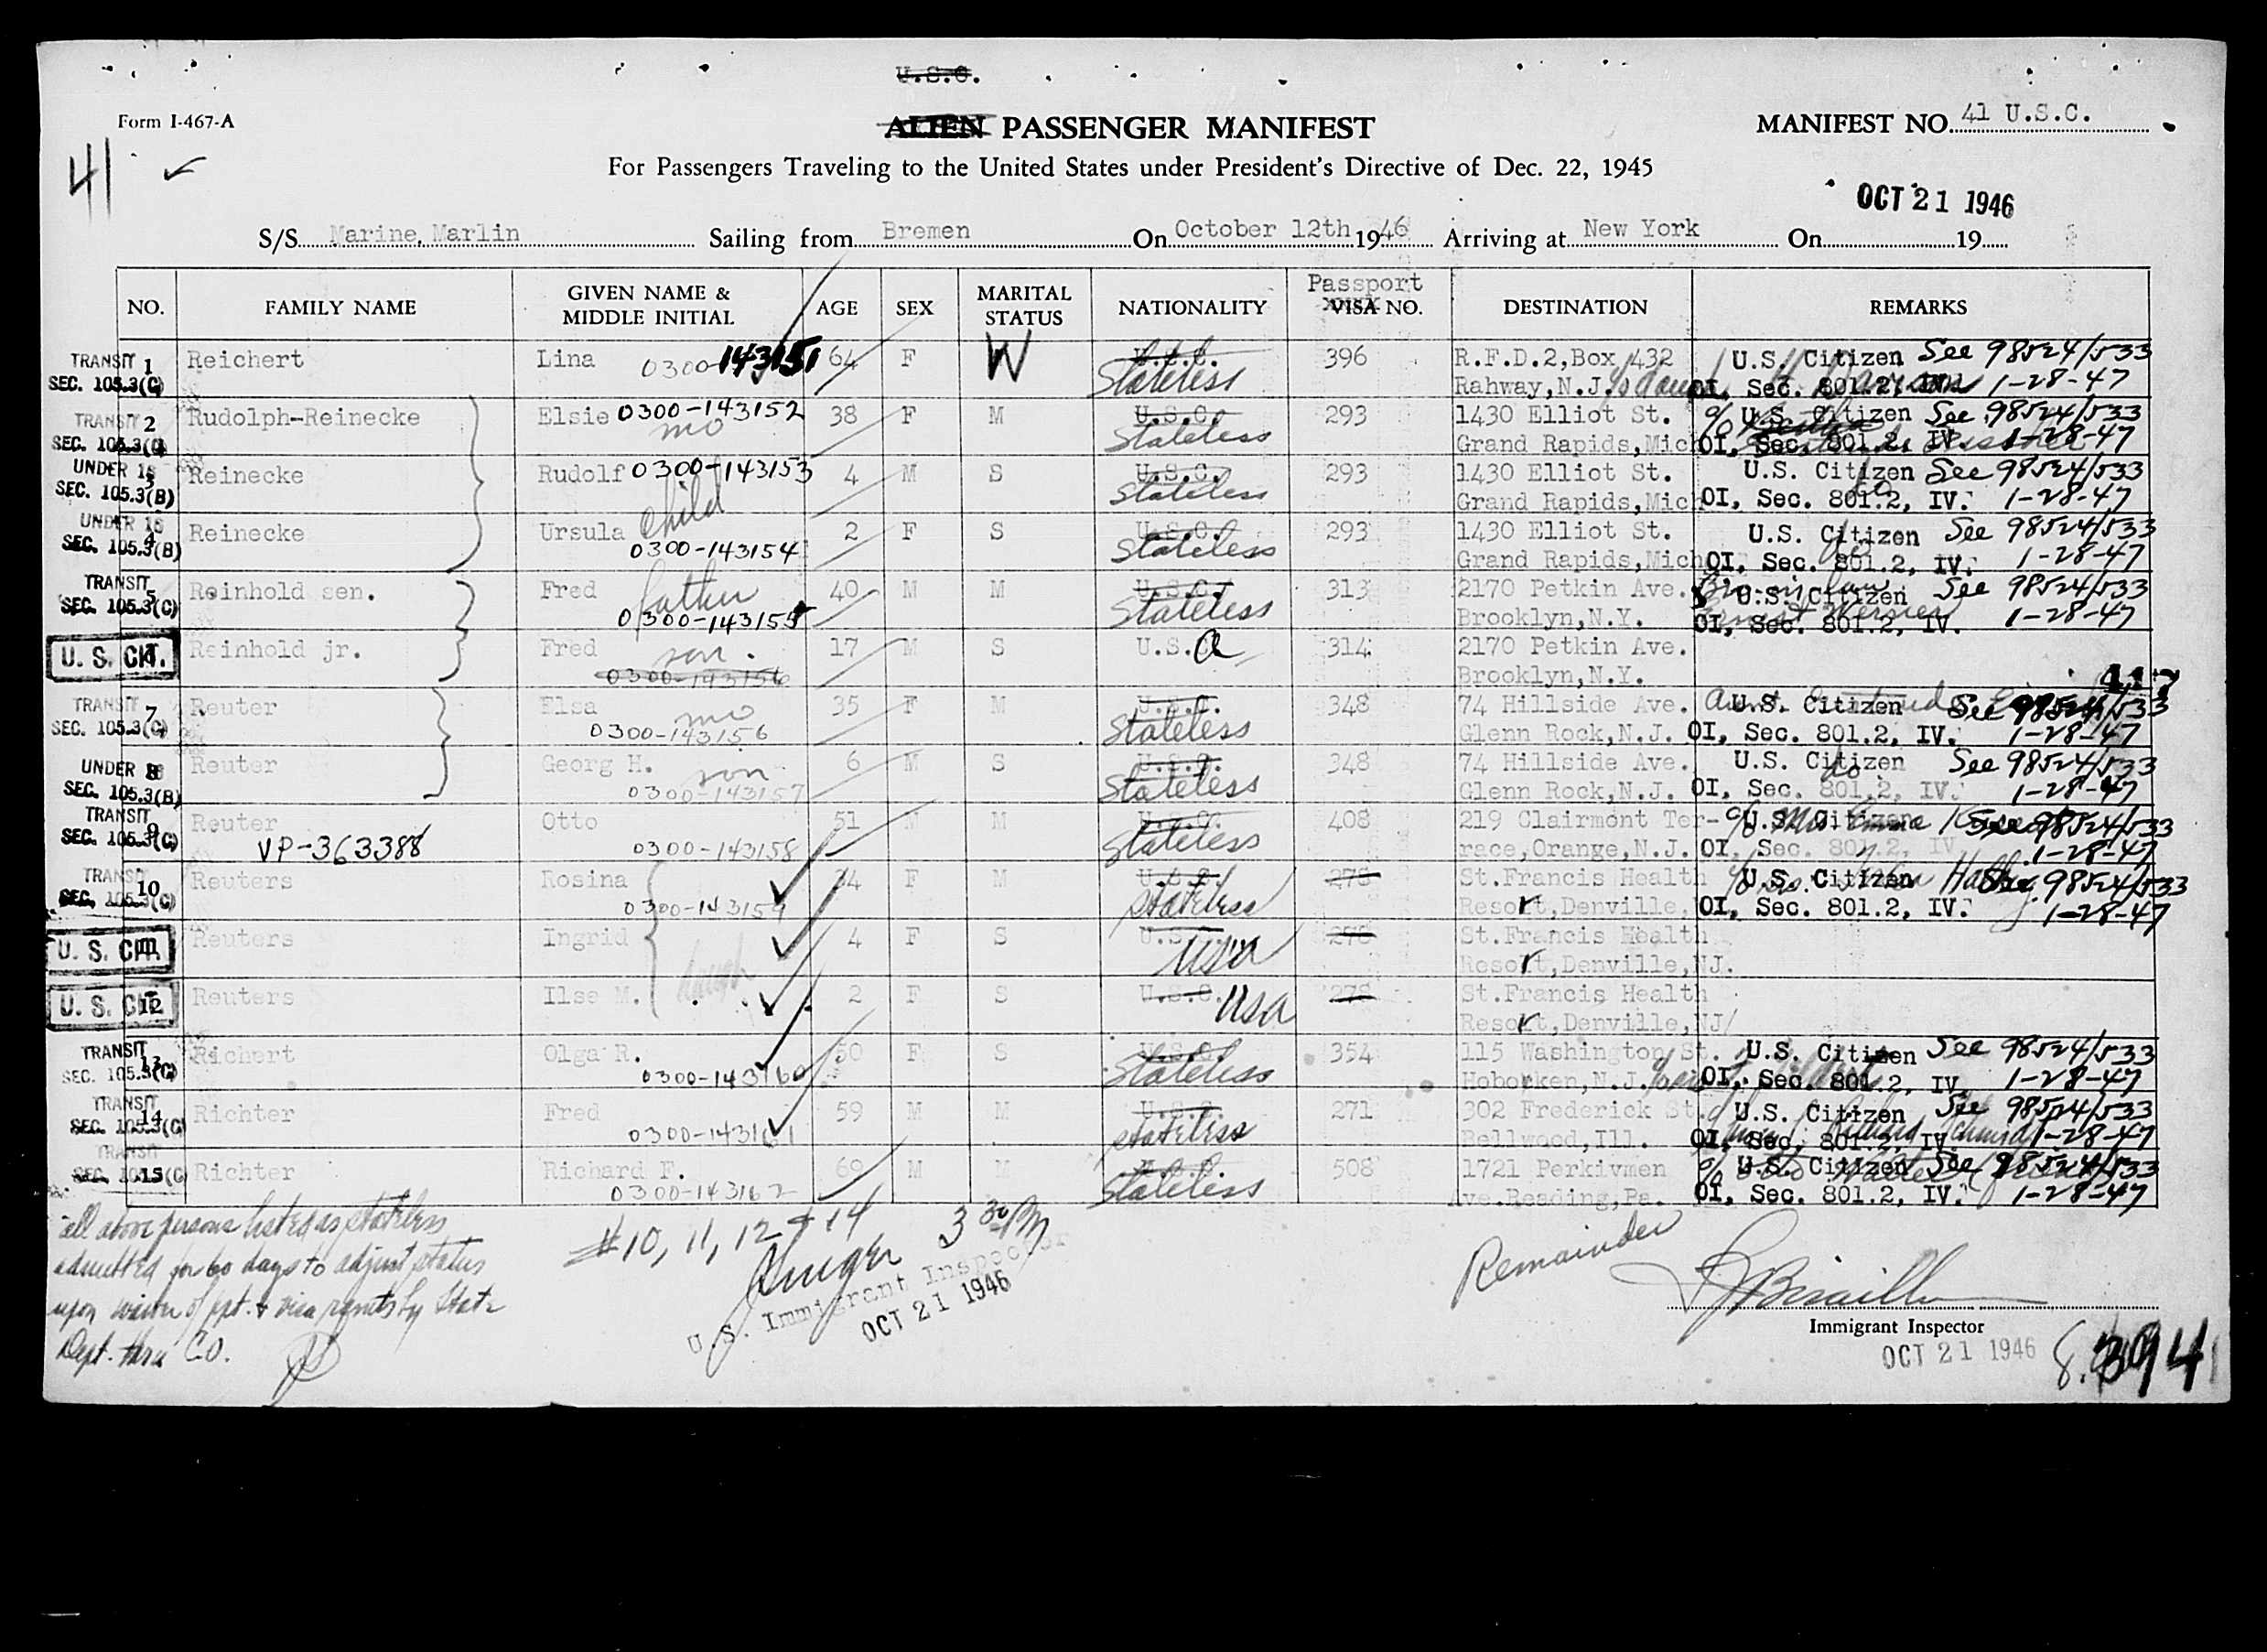 U.S.C.
Form I-467-A
ALIEN PASSENGER MANIFEST
MANIFEST NO. 41 U.S.C.
41
For Passengers Traveling to the United States under President's Directive of Dec. 22, 1945
OCT 21 1946
S/S Marine Marlin Sailing from Bremen On October 12th 1946 Arriving at New York On 19
NO. FAMILY NAME GIVEN NAME & MIDDLE INITIAL AGE SEX MARITAL STATUS NATIONALITY Passport VISA NO. DESTINATION REMARKS
TRANSIT 1 Reichert Lina 0300-143151 64 F W U.S.C. Stateless 396 R.F.D.2,Box 432 U.S. Citizen See 98524/533
SEC. 105.3(C) Rahway,N.J. OI, Sec. 801.2, IV. 1-28-47
TRANSIT 2 Rudolph-Reinecke Elsie 0300-143152 mo 38 F M U.S.C. Stateless 293 1430 Elliot St. c/o U.S. Citizen See 98524/533
SEC. 105.3(C) Grand Rapids,Mich OI, Sec. 801.2, IV. 1-28-47
UNDER 16 3 Reinecke Rudolf 0300-143153 4 M S U.S.C. Stateless 293 1430 Elliot St. U.S. Citizen See 98524/533
SEC. 105.3(B) child Grand Rapids,Mich OI, Sec. 801.2, IV. do 1-28-47
UNDER 16 4 Reinecke Ursula 0300-143154 2 F S U.S.C. Stateless 293 1430 Elliot St. U.S. Citizen See 98524/533
SEC. 105.3(B) Grand Rapids,Mich OI, Sec. 801.2, IV. do 1-28-47
TRANSIT 5 Reinhold sen. Fred father 0300-143155 40 M M U.S.C. Stateless 313 2170 Petkin Ave. U.S. Citizen See 98524/533
SEC. 105.3(C) Brooklyn,N.Y. OI, Sec. 801.2, IV. 1-28-47
U. S. CIT. Reinhold jr. Fred son 0300-143156 17 M S U.S.a 314 2170 Petkin Ave.
Brooklyn,N.Y.
117
TRANSIT 7 Reuter Elsa mo 0300-143156 35 F M U.S.C. Stateless 348 74 Hillside Ave. aunt U.S. Citizen See 98524/533
SEC. 105.3(C) Glenn Rock,N.J. OI, Sec. 801.2, IV. 1-28-47
UNDER 16 8 Reuter Georg H. son 0300-143157 6 M S U.S.C. Stateless 348 74 Hillside Ave. U.S. Citizen See 98524/533
SEC. 105.3(B) Glenn Rock,N.J. OI, Sec. 801.2, IV. do 1-28-47
TRANSIT 9 Reuter Otto 0300-143158 51 M M U.S.C. Stateless 408 219 Clairmont Ter- c/o Mrs Emma U.S. Citizen See 98524/533
SEC. 105.3(C) VP-363388 race,Orange,N.J. OI, Sec. 801.2, IV. 1-28-47
TRANSIT 10 Reuters Rosina 0300-143159 34 F M U.S.C. Stateless 278 St.Francis Health U.S. Citizen See 98524/533
SEC. 105.3(C) Resort,Denville, OI, Sec. 801.2, IV. 1-28-47
U. S. CIT. 11 Reuters Ingrid daugh 4 F S U.S.C. USA 278 St.Francis Health
Resort,Denville,NJ.
U. S. CIT. 12 Reuters Ilse M. 2 F S U.S.C. USA 278 St.Francis Health
Resort,Denville,NJ/
TRANSIT 13 Richert Olga R. 0300-143160 50 F S U.S.C. Stateless 354 115 Washington St. U.S. Citizen See 98524/533
SEC. 105.3(C) Hoborken,N.J. OI, Sec. 801.2, IV. 1-28-47
TRANSIT 14 Richter Fred 0300-143161 59 M M U.S.C. Stateless 271 302 Frederick St. U.S. Citizen See 98524/533
SEC. 105.3(C) Bellwood,Ill. OI, Sec. 801.2, IV. Schmidt 1-28-47
TRANSIT 15 Richter Richard F. 0300-143162 69 M M U.S.C. Stateless 508 1721 Perkivmen c/o U.S. Citizen See 98524/533
SEC. 105.3(C) Ave.Reading,Pa. OI, Sec. 801.2, IV. 1-28-47
all above persons listed as stateless
admitted for 60 days to adjust status
upon waiver of ppt. & visa rqmts by State
Dept. thru C.O.
#10, 11, 12 + 14 3 30 PM
U.S. Immigrant Inspector
OCT 21 1946
Remainder
Immigrant Inspector
OCT 21 1946